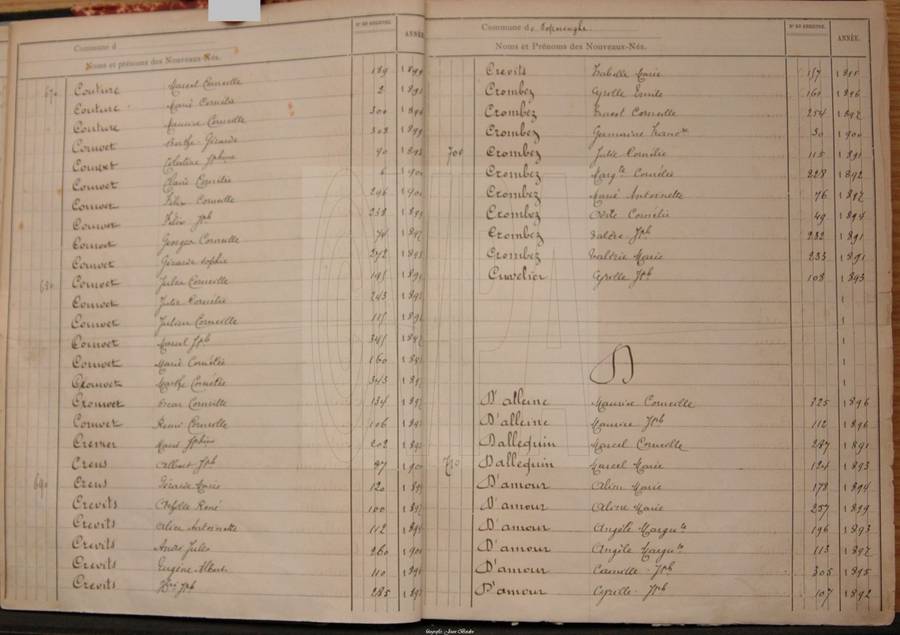 Commune d
Nos DU REGISTRE.
ANNÉE
Noms et prénoms des Nouveaux-Nés.
670 Couture Marcel Corneille 189 1899
Couture Marie Cornélie 2 189
Couture Maurice Corneille 300 189
Couvet Berthe Gérarde 308 1899
Couvet Célestine Jphine 90 189
Couvet Marie Cornélie 6 190
Couvet Félix Corneille 246 190
Couvet Félix Jph 238 189
Couvet Georges Corneille 74 189
Couvet Gérarde Sophie 272 189
680 Couvet Jules Corneille 195 189
Couvet Julie Cornélie 243 189
Couvet Julien Corneille 115 189
Couvet Marcel Jph 345 189
Couvet Marie Cornélie 160 189
Couvet Marthe Cornélie 343 189
Couvet Oscar Corneille 134 189
Couvet Remi Corneille 106 189
Cremer Marie Jphine 202 189
Creus Albert Jph 97 190
690 Creus Gérarde Marie 120 189
Crevits Achille René 100 189
Crevits Alice Antoinette 112 189
Crevits André Jules 260 190
Crevits Eugène Albert 110 189
Crevits Hri Jph 285 189
Commune de Poperinghe
Nos DU REGISTRE.
ANNÉE.
Noms et Prénoms des Nouveaux-Nés.
Crevits Isabelle Marie 157 1895
Crombez Cyrille Emile 161 1896
Crombez Ernest Corneille 254 1892
Crombez Germaine 30 1900
700 Crombez Julie Cornélie 115 1891
Crombez Margte Cornélie 228 1892
Crombez Marie Antoinette 76 1897
Crombez Cornélie 49 1894
Crombez Valère Jph 232 1891
Crombez Valérie Marie 233 1891
Cuvelier Cyrille Jph 108 1893
D
D'alleine Maurice Corneille 225 1896
D'alleine Maurice Jph 112 1896
Dallequin Marcel Corneille 287 1891
710 Dallequin Marcel Marie 124 1893
D'amour Alice Marie 178 1894
D'amour Aline Marie 257 1899
D'amour Angèle Margute 196 1893
D'amour Angèle Margute 113 1897
D'amour Camille Jph 305 1895
D'amour Cyrille Jph 107 1892